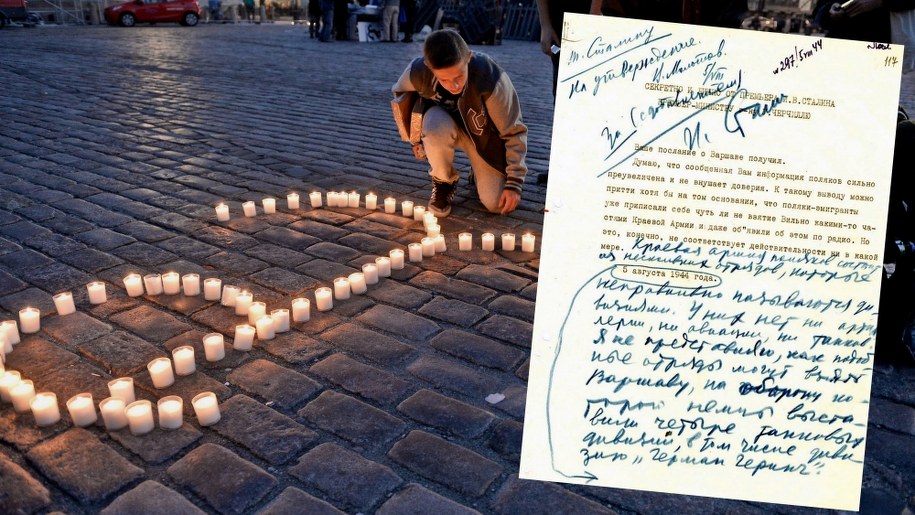 т. Сталину
На утверждение.
В. Молотов.
5/VIII
н 297/5viii 44
117
СЕКРЕТНО И ЛИЧНО ОТ ПРЕМЬЕРА И.В.СТАЛИНА
ПРЕМЬЕР-МИНИСТРУ У. ЧЕРЧИЛЛЮ
За (с дополнением)
И. Сталин
Ваше послание о Варшаве получил.
Думаю, что сообщенная Вам информация поляков сильно
преувеличена и не внушает доверия. К такому выводу можно
притти хотя бы на том основании, что поляки-эмигранты
уже приписали себе чуть ли не взятие Вильно какими-то ча-
стями Краевой Армии и даже об"явили об этом по радио. Но
это, конечно, не соответствует действительности ни в какой
мере. Краевая армия поляков состоит
из нескольких отрядов, которые
5 августа 1944 года.
неправильно называются ди-
визиями. У них нет ни артил-
лерии, ни авиации, ни танков.
Я не представляю, как подоб-
ные отряды могут взять
Варшаву, на оборону ко-
торой немцы выста-
вили четыре танковых
дивизий, в том числе диви-
зию „Герман Геринг".